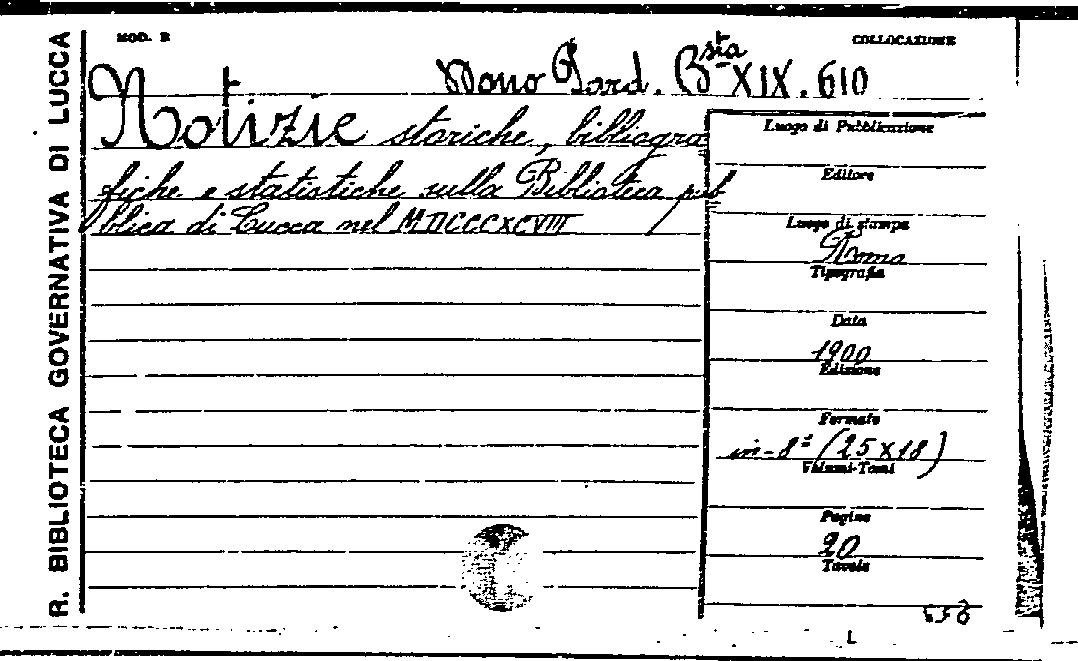 R. BIBLIOTECA GOVERNATIVA DI LUCCA
MOD. B
COLLOCAZIONE
Dono Pard. Bsta XIX. 610
Notizie storiche, bibliogra
fiche e statistiche sulla Biblioteca pub
blica di Lucca nel MDCCCXCVIII
Luogo di Pubblicazione
Editore
Luogo di stampa
Roma
Tipografia
Data
1900
Edizione
Formato
in-8º (25 x 18)
Volumi-Tomi
Pagine
20
Tavole
L